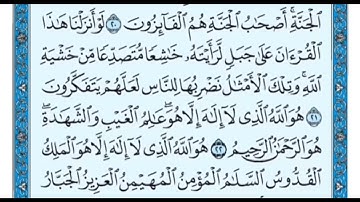 ٱلۡجَنَّةِۚ أَصۡحَٰبُ ٱلۡجَنَّةِ هُمُ ٱلۡفَآئِزُونَ ٢٠ لَوۡ أَنزَلۡنَا هَٰذَا
ٱلۡقُرۡءَانَ عَلَىٰ جَبَلٖ لَّرَأَيۡتَهُۥ خَٰشِعٗا مُّتَصَدِّعٗا مِّنۡ خَشۡيَةِ
ٱللَّهِۚ وَتِلۡكَ ٱلۡأَمۡثَٰلُ نَضۡرِبُهَا لِلنَّاسِ لَعَلَّهُمۡ يَتَفَكَّرُونَ
٢١ هُوَ ٱللَّهُ ٱلَّذِي لَآ إِلَٰهَ إِلَّا هُوَۖ عَٰلِمُ ٱلۡغَيۡبِ وَٱلشَّهَٰدَةِۖ
هُوَ ٱلرَّحۡمَٰنُ ٱلرَّحِيمُ ٢٢ هُوَ ٱللَّهُ ٱلَّذِي لَآ إِلَٰهَ إِلَّا هُوَ ٱلۡمَلِكُ
ٱلۡقُدُّوسُ ٱلسَّلَٰمُ ٱلۡمُؤۡمِنُ ٱلۡمُهَيۡمِنُ ٱلۡعَزِيزُ ٱلۡجَبَّارُ